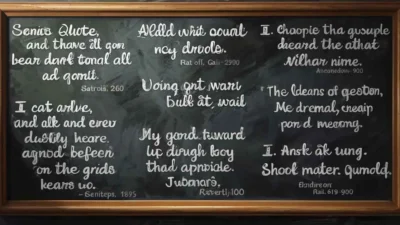 Senius Quote,
and thave all gon
bear dank tonal all
ad gomit.
Satrois, 260
I cat arlve,
and alk and evru
dustily heare
agnod befeen
on the grids
kears uo.
- Senitops, 1695
Aldld whit coual
ncy drvols.
Rat off, Gaii-2900
Uoing ont wari
bult at wail
My gond tuward
lip dirugh boy
thad apnrible.
Jubonars,
Raverti, 100
I. Choopie tha gusuple
dheard the athat
Nilhar nime.
"The Ideans of geston,
Me dremal, creaip
pon d meorng.
I. Ansk at tung.
Shool mater. Qumold.